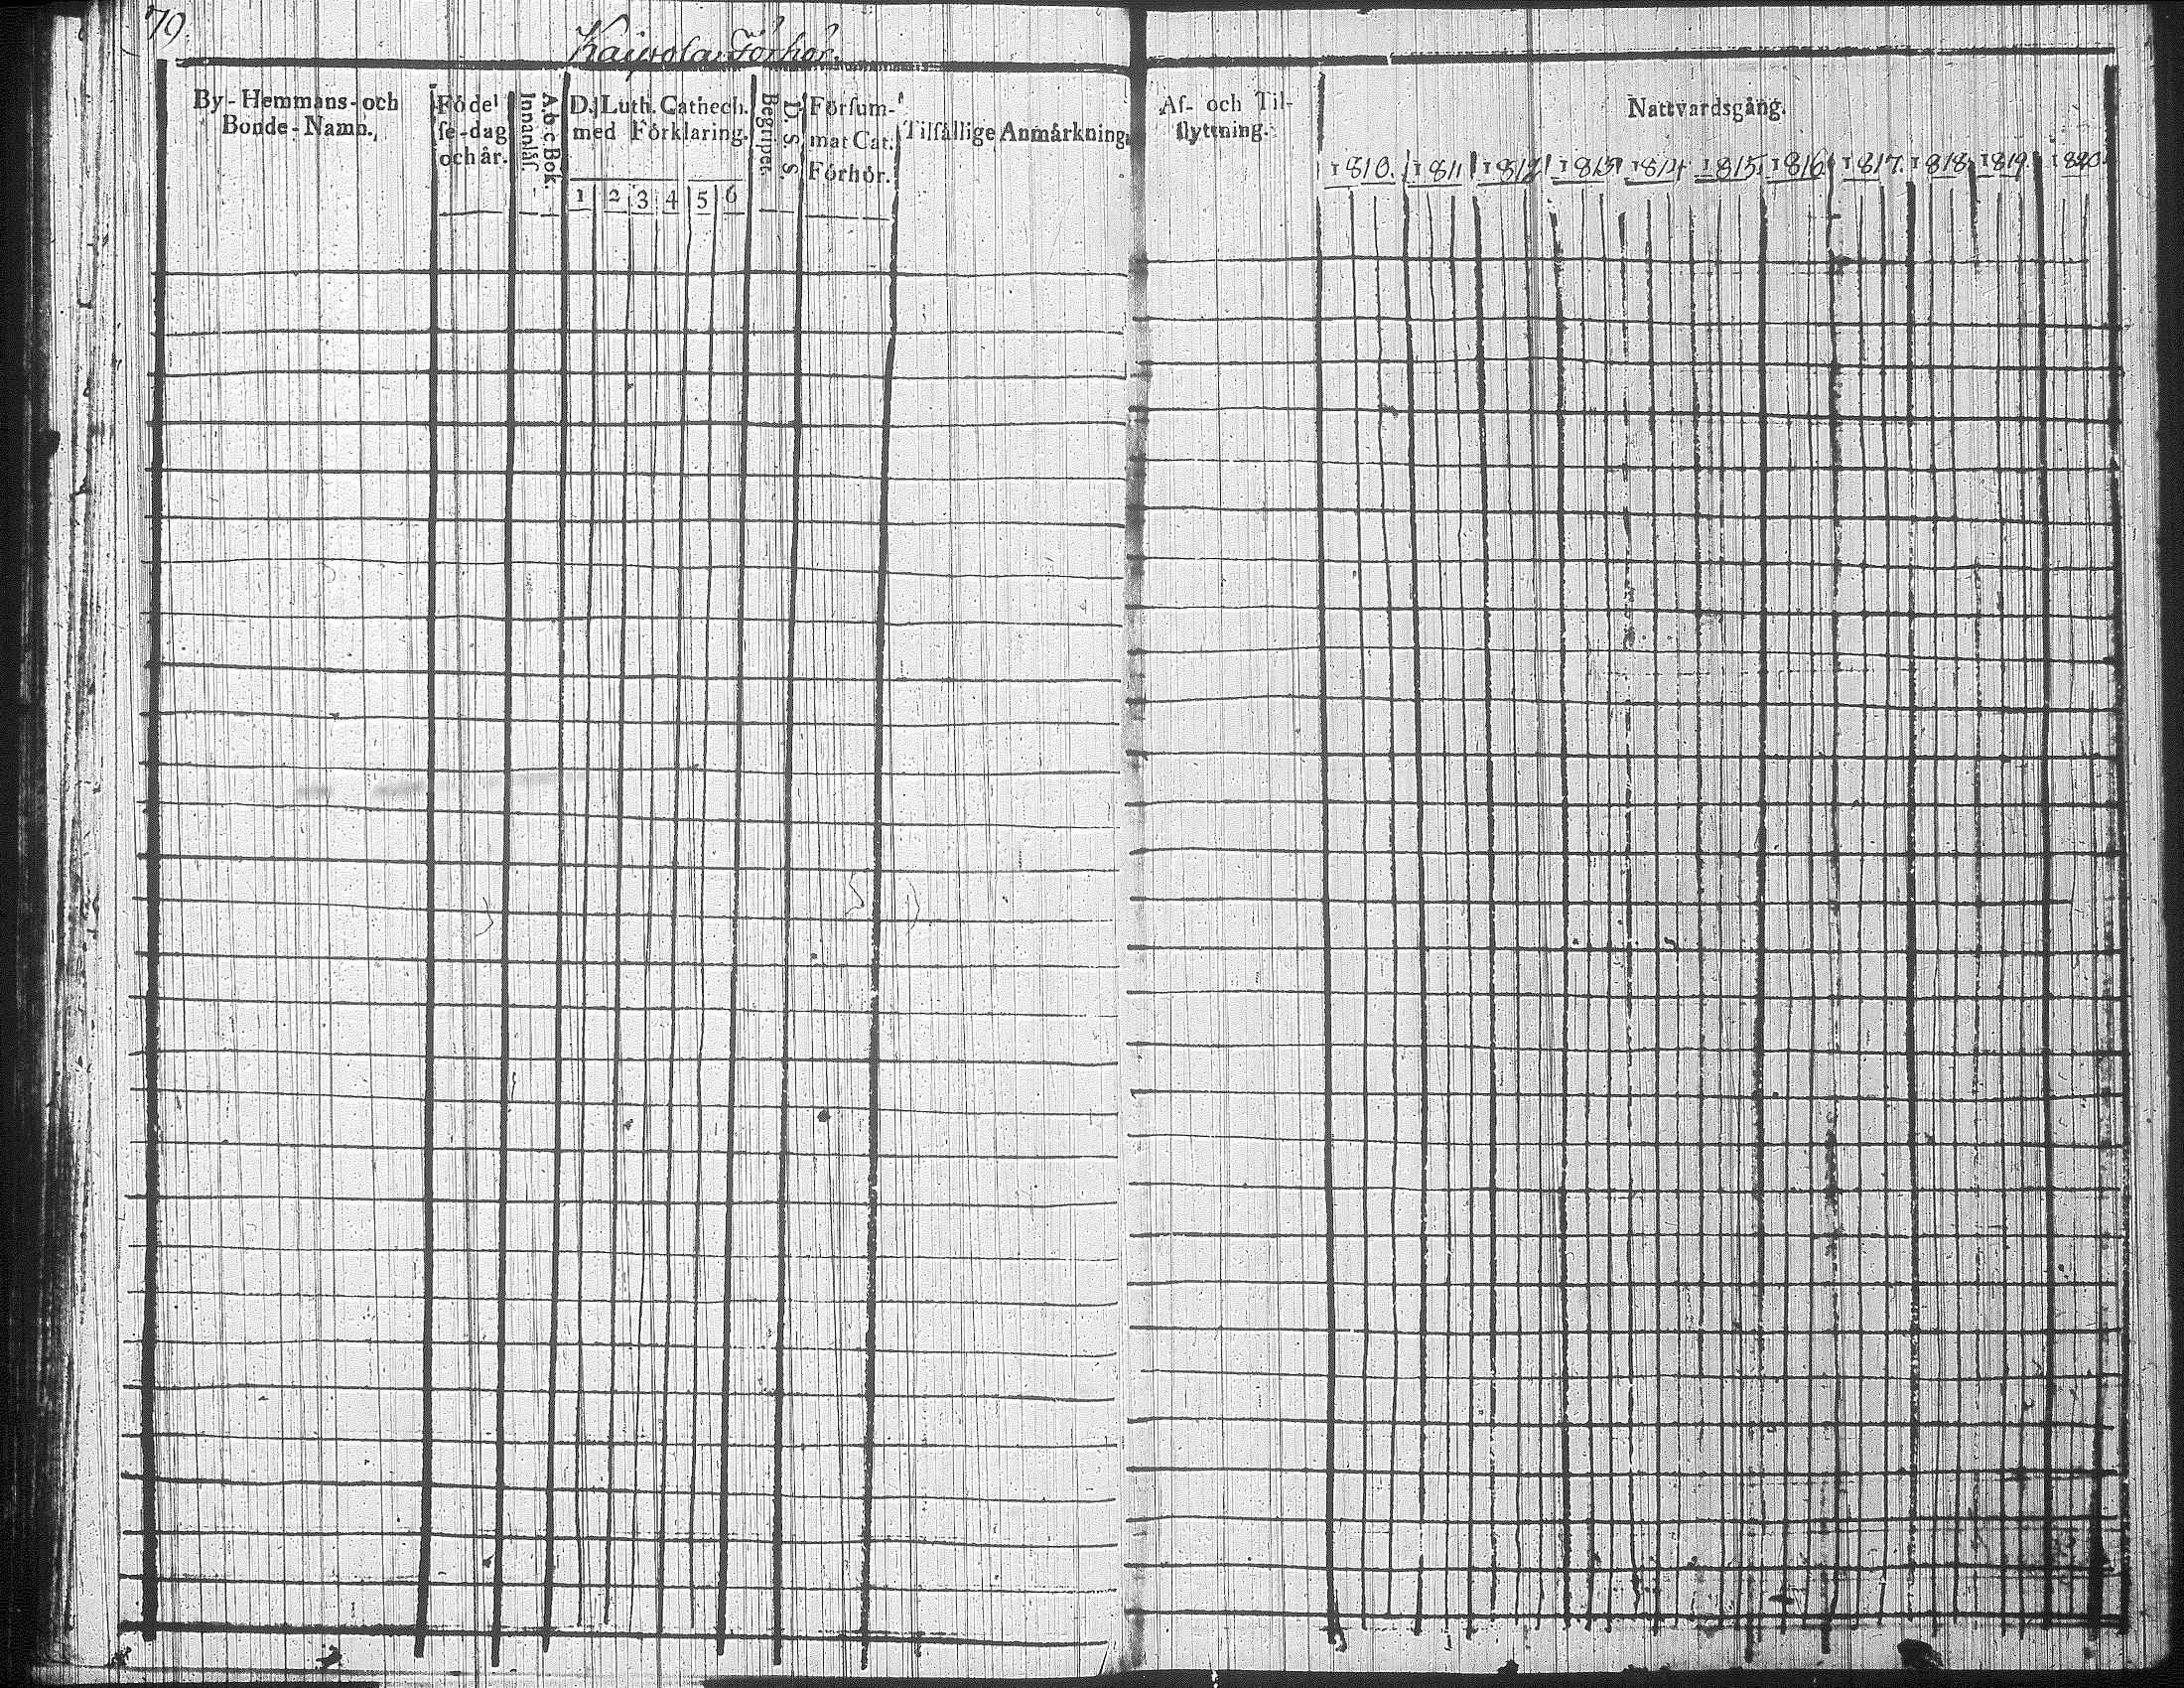 79.
Kaivola Förhör.
By-Hemmans-och
Bonde-Namn.
Födel
se-dag
och år.
Innanläs.
A.b.c Bok.
D. Luth. Cathech.
med Förklaring.
1 2 3 4 5 6
Begriper.
D. S. S.
Försum-
mat Cat.
Förhör.
Tilfällige Anmärkning.
Af- och Til-
flyttning.
Nattvardsgång.
1810. 1811 1812 1813 1814 1815. 1816. 1817. 1818. 1819. 1820.